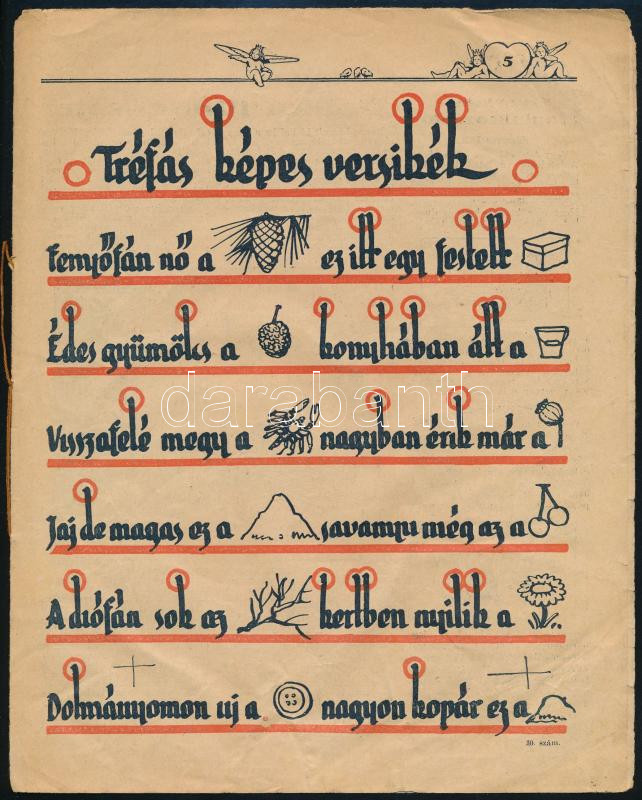 5
Tréfás képes versikék
Fenyőfán nő a ez itt egy festett
Édes gyümölcs a konyhában állt a
Visszafelé megy a nagyban érik már a
Jaj de magas ez a savanyu még az a
A diófán sok az kertben nyilik a
Dolmányomon uj a nagyon kopár ez a
30. szám.
darabanth.com